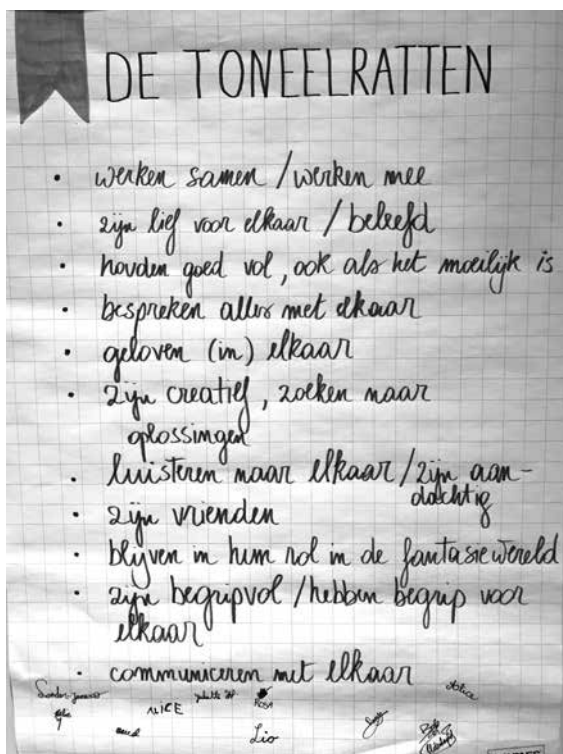 DE TONEELRATTEN
• werken samen / werken mee
• zijn lief voor elkaar / beleefd
• houden goed vol, ook als het moeilijk is
• bespreken alles met elkaar
• geloven (in) elkaar
• zijn creatief, zoeken naar
oplossingen
• luisteren naar elkaar / zijn aan-
dachtig
• zijn vrienden
• blijven in hun rol in de fantasiewereld
• zijn begripvol / hebben begrip voor
elkaar
• communiceren met elkaar
ALICE ROSA
Lio